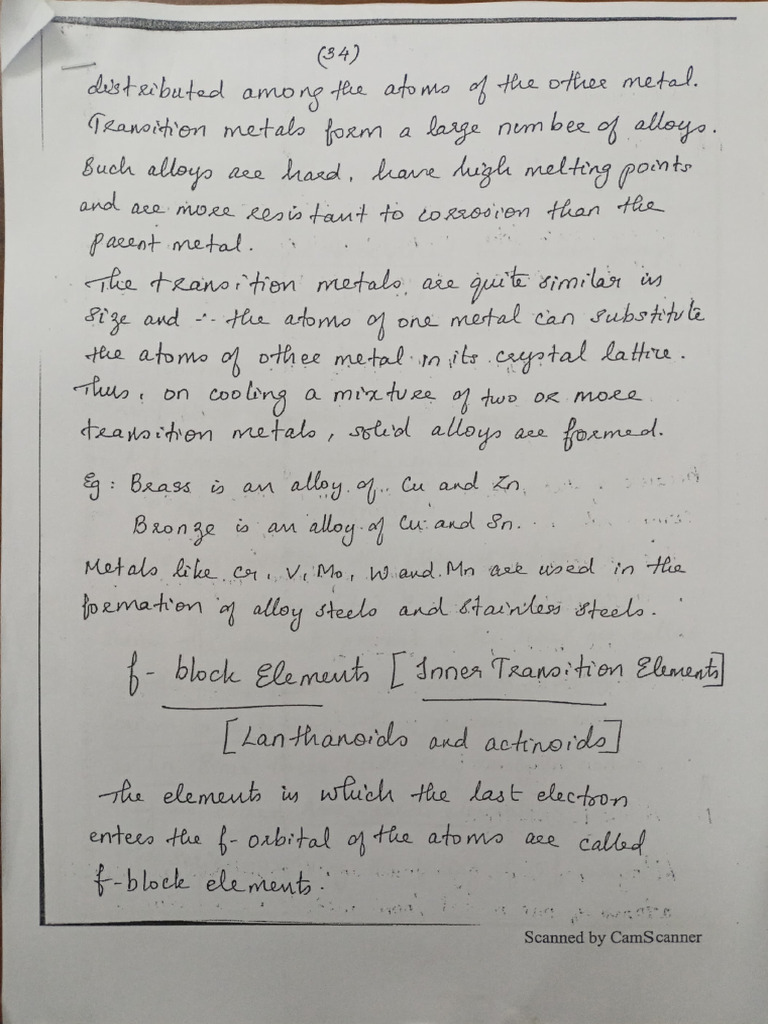 (34)
distributed among the atoms of the other metal.
Transition metals form a large number of alloys.
Such alloys are hard, have high melting points
and are more resistant to corrosion than the
parent metal.
The transition metals are quite similar in
size and ∴ the atoms of one metal can substitute
the atoms of other metal in its crystal lattice.
Thus, on cooling a mixture of two or more
transition metals, solid alloys are formed.
Eg: Brass is an alloy of Cu and Zn
Bronze is an alloy of Cu and Sn.
Metals like Cr, V, Mo, W and Mn are used in the
formation of alloy steels and stainless steels.
f- block Elements [Inner Transition Elements]
[Lanthanoids and actinoids]
The elements in which the last electron
enters the f- orbital of the atoms are called
f-block elements.
Scanned by CamScanner